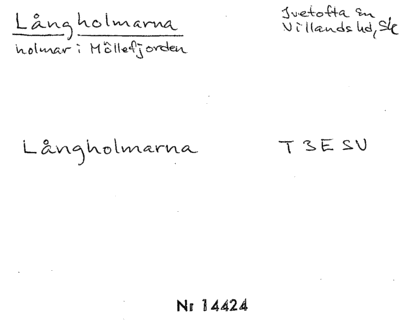 Långholmarna
holmar i Möllefjorden
Ivetofta sn
Villands hd, Sk
Långholmarna
T 3 E SV
Nr 14424